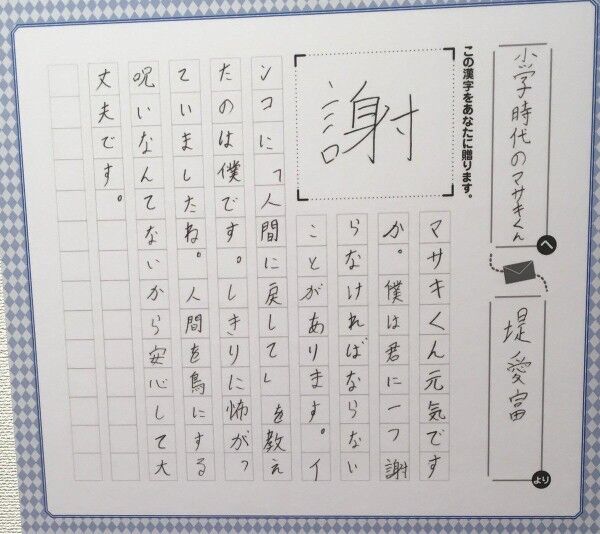 小学時代のマサキくん へ
堤愛富 より
この漢字をあなたに贈ります。
謝
マサキくん元気です
か。僕は君に一つ謝
らなければならない
ことがあります。イ
ンコに「人間に戻して」を教え
たのは僕です。しきりに怖がっ
ていましたね。人間を鳥にする
呪いなんてないから安心して大
丈夫です。